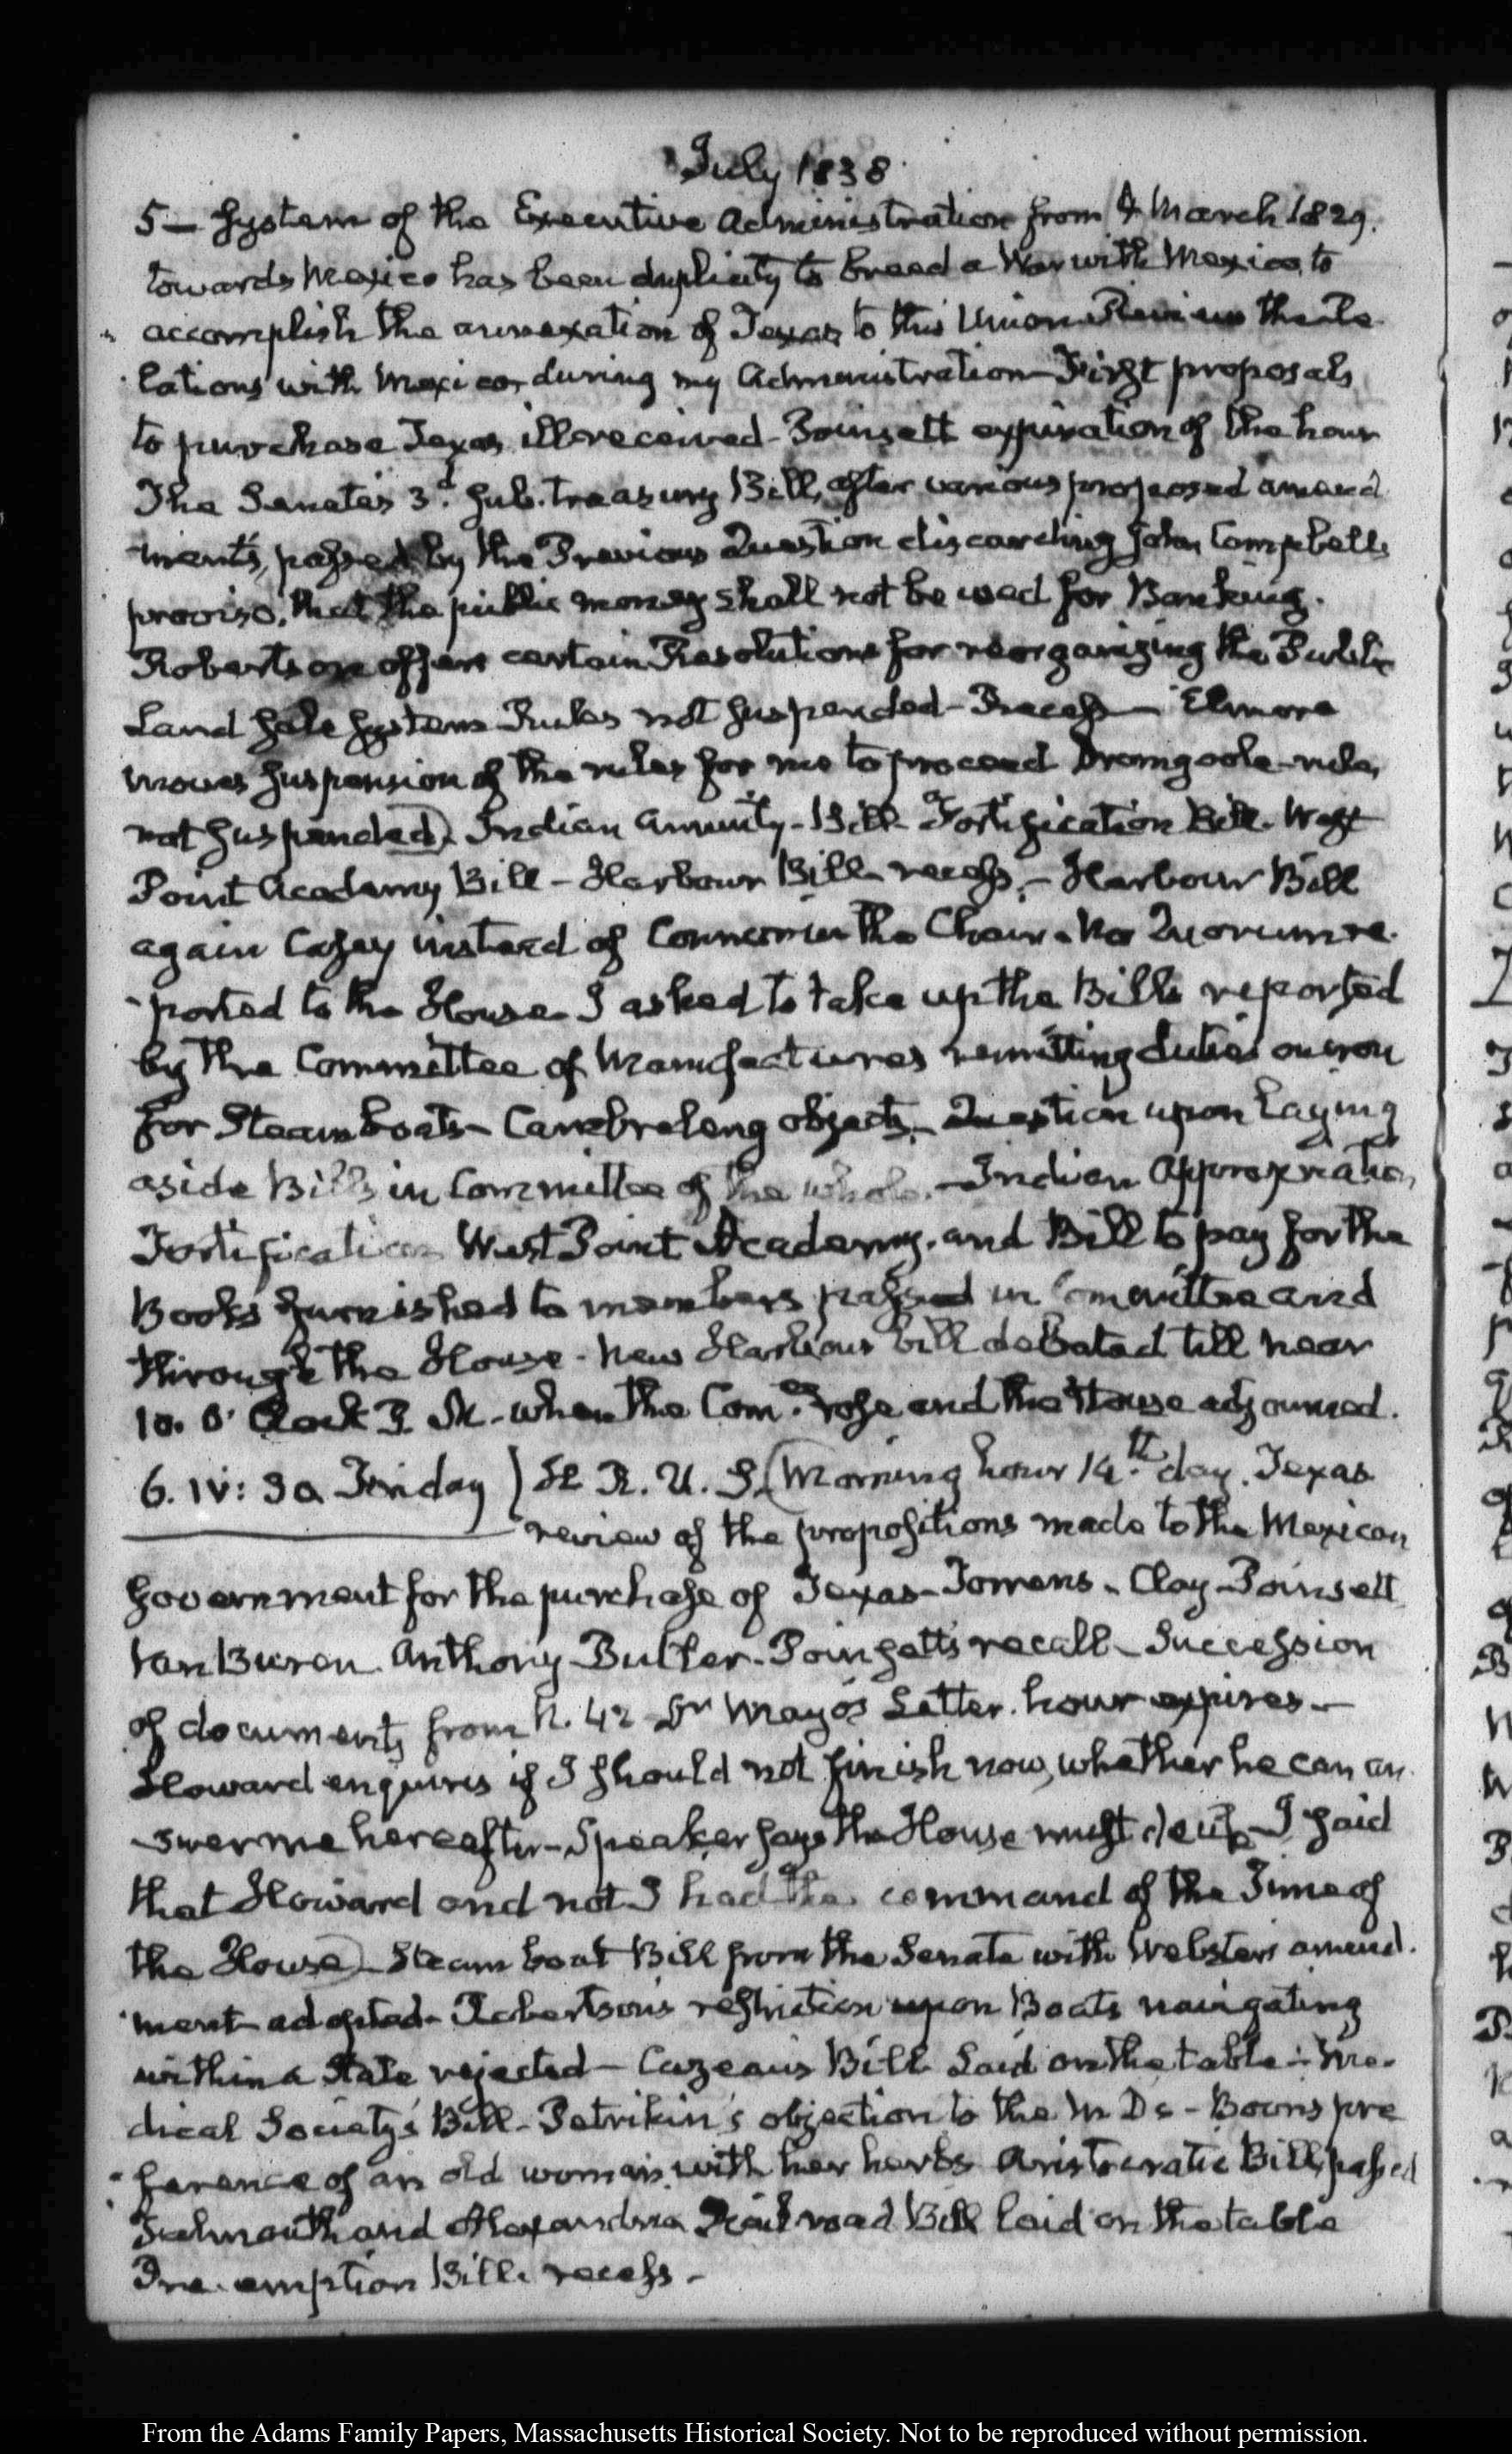 July 1838.
5— System of the Executive Administration from 4 March 1829.
towards Mexico has been duplicity to breed a War with Mexico, to
accomplish the annexation of Texas to this Union Review the Re
lations with Mexico, during my Administration—First proposals
to purchase Texas, ill received—Poinsett expiration of the hour
The Senate's 3.d Sub.treasury Bill, after various proposed amend
ments, passed by the Previous Question discarding John Campbells
proviso, that the public money shall not be used for Banking.
Robertson offers certain Resolutions for reorganizing the Public
Land Sale System Rules not suspended—Recess— Elmore
moves suspension of the rules for me to proceed Dromgoole—rules
not suspended). Indian annuity—Bill—Fortification Bill. West
Point Academy Bill—Harbour Bill—recess.—Harbour Bill
again Casey instead of Connor in the Chair. No Quorum re.
ported to the House—I asked to take up the Bills reported
by the Committee of Manufactures remitting duties on iron
for Steam boats—Cambreleng objects.—Question upon laying
aside Bills in Committee of the whole.—Indian Appropriation,
Fortification West Point Academy, and Bill to pay for the
Books furnished to members passed in Committee and
through the House. New Harbour bill debated till near
10. O'Clock P. M. when the Com.ee rose and the House adjourned.
6. IV: 30. Friday) H. R. U. S. (Morning hour 14.th day. Texas
review of the propositions made to the Mexican
Government for the purchase of Texas— Clay—Poinsett
Van Buren. Anthony Butler—Poinsett's recall—Succession
of documents from N. 42 Dr Mayo's Letter. hour expires—
Howard enquires if I should not finish now, whether he can an.
swer me hereafter—Speaker says the House must decide—I said
that Howard and not I had the command of the Time of
the House)—Steam boat Bill from the Senate with Webster's amend.
ment adopted—Robertson's restriction upon Boats navigating
within a State rejected—Cazeau's Bill Laid on the table—Me.
dical Society's Bill—Petrikin's objection to the M Ds—Boons pre
ference of an old woman with her herbs Aristocratic Bill, passed
Falmouth and Alexandria Rail road Bill laid on the table
Pre-emption Bill. recess—
From the Adams Family Papers, Massachusetts Historical Society. Not to be reproduced without permission.